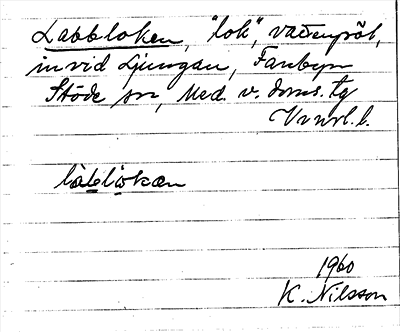 Labbloken, "lok", vattenpöl,
invid Ljungan, Fanbyn
Stöde sn, Med. v. doms. tg
Vnorl. l.
1960
K. Nilsson